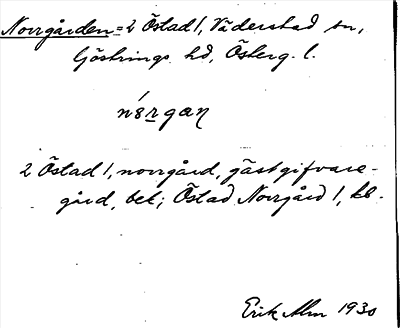 Norrgården = 2 Östad 1, Väderstad sn,
Göstrings hd, Österg. l.
2 Östad 1, norrgård, gästgifvare-
gård, bel; Östad Norrgård 1, kb.
Erik Alm 1930